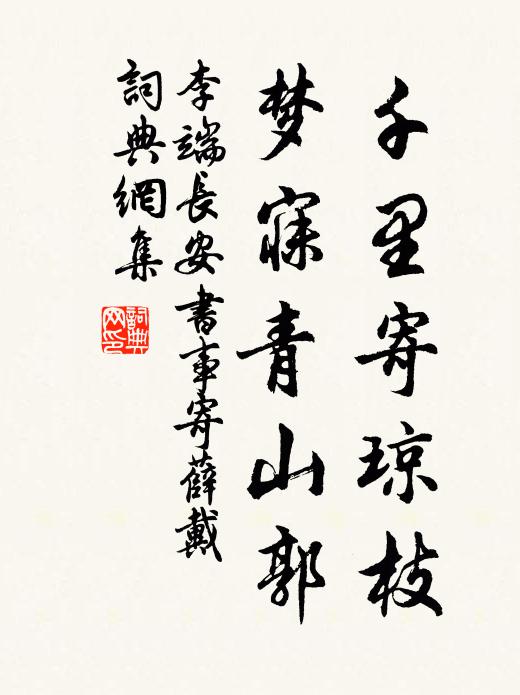 千里寄琼枝
梦寐青山郭
李端長安書事寄薛戴
詞典網集
詞典网印